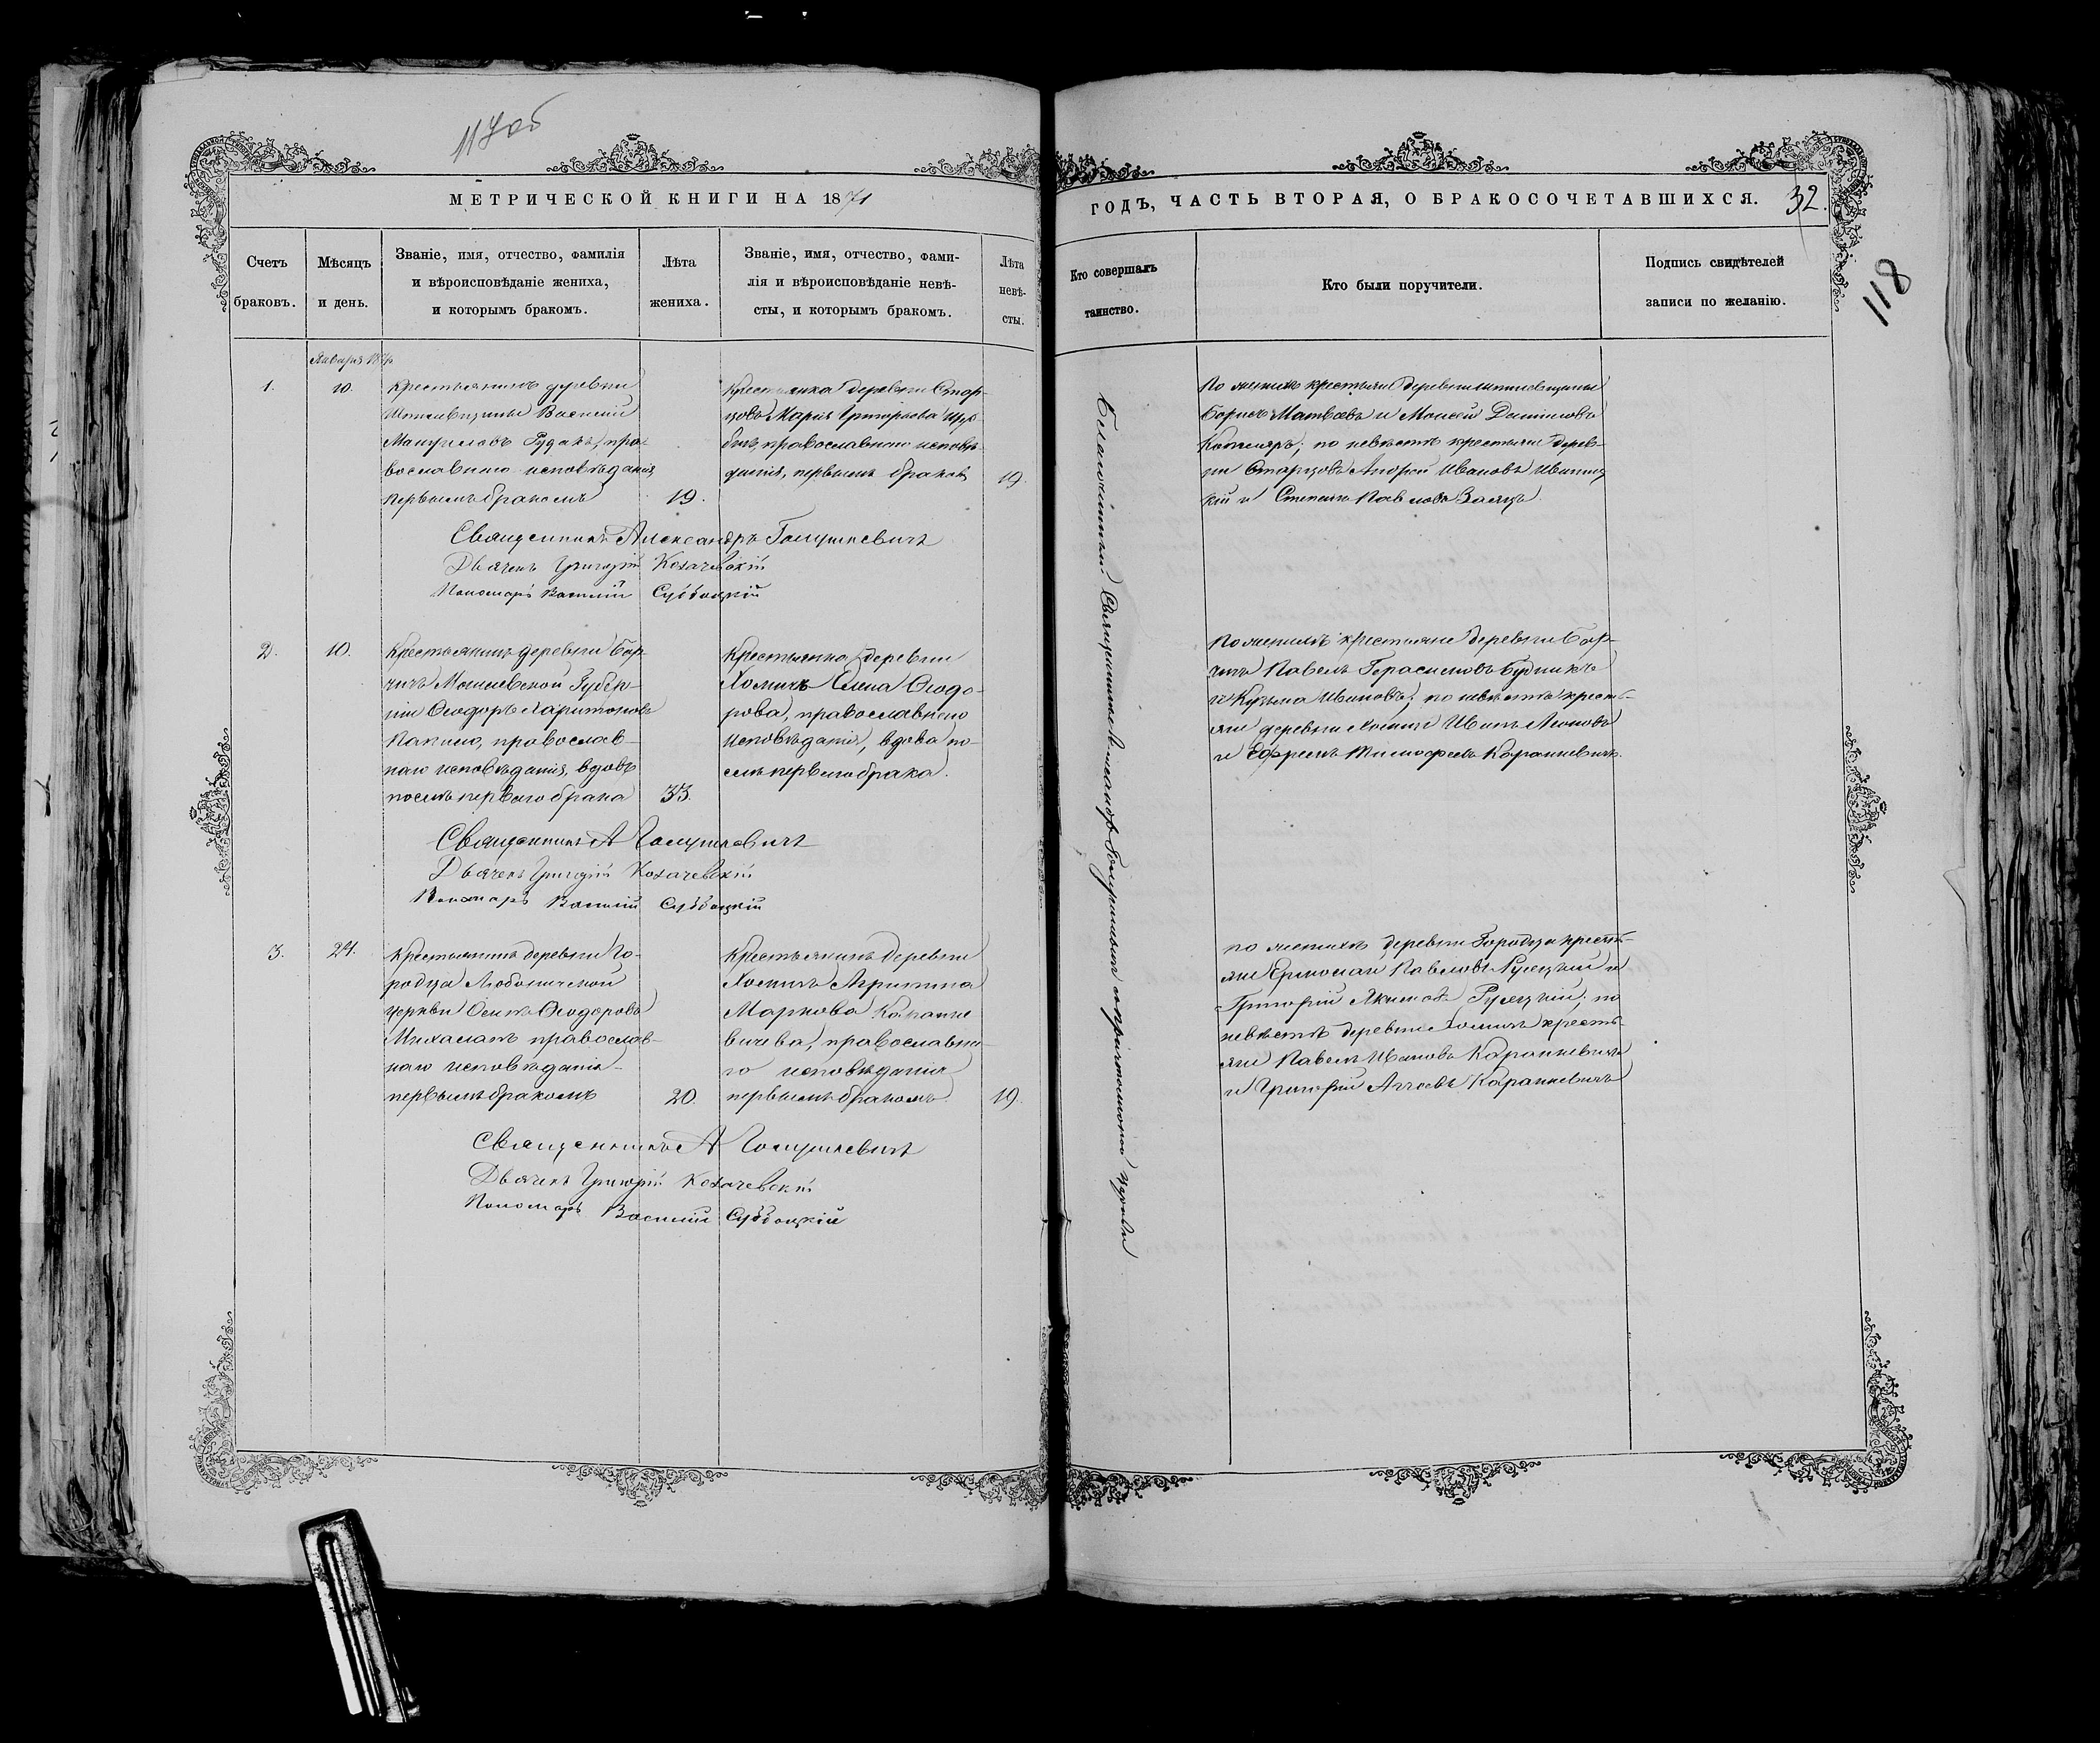 117об
МЕТРИЧЕСКОЙ КНИГИ НА 1871
ГОДЪ, ЧАСТЬ ВТОРАЯ, О БРАКОСОЧЕТАВШИХСЯ.
32.
118
Счетъ
браковъ.
Мѣсяцъ
и день.
Званіе, имя, отчество, фамилія
и вѣроисповѣданіе жениха,
и которымъ бракомъ.
Лѣта
жениха.
Званіе, имя, отчество, фами-
лія и вѣроисповѣданіе невѣ-
сты, и которымъ бракомъ.
Лѣта
невѣ-
сты.
Кто совершалъ
таинство.
Кто были поручители.
Подпись свидѣтелей
записи по желанію.
Января
1.
10.
Крестьянинъ деревни
Василій
Рудакъ, пра-
вославнаго исповѣданія,
первымъ бракомъ
19.
Крестьянка деревни Стар-
цовъ Марія Григорьева
православнаго исповѣ-
данія, первымъ бракомъ
19.
По женихѣ крестьяне деревни
Борисъ Матвѣевъ и Моисей Даниловъ
Котляръ; по невѣстѣ крестьяне дерев-
ни Старцовъ Андрей Ивановъ
и Степанъ Павловъ Заяцъ.
Священникъ Александръ Голушкевичъ
Дьячекъ Григорій Козачевскій
Пономарь Василій Субботскій
2.
10.
Крестьянинъ деревни Бор-
чихъ Могилевской Губер-
ніи Ѳеодоръ Харитоновъ
православ-
наго исповѣданія, вдовъ
послѣ перваго брака
33.
Крестьянка деревни
Хомичъ Елена Ѳеодо-
рова, православнаго
исповѣданія, вдова по-
слѣ перваго брака.
По женихѣ крестьяне деревни Бор-
Павелъ Герасимовъ Будникъ
и Кузьма Ивановъ; по невѣстѣ кресть-
яне деревни Хомичъ Иванъ
и Ефремъ Тимофеевъ Каранкевичъ.
Священникъ А Голушкевичъ
Дьячекъ Григорій Козачевскій
Пономарь Василій Субботскій
3.
24.
Крестьянинъ деревни Го-
родца Любоничской
церкви Осипъ Ѳеодоровъ
православ-
наго исповѣданія
первымъ бракомъ
20.
Крестьянинъ деревни
Хомичъ Агрипина
Маркова Каранке
вичева, православна-
го исповѣданія
первымъ бракомъ
19.
по женихѣ деревни Городца кресть-
яне Ермолай Павловъ Русецкій и
Григорій Якимовъ Русецкій; по
невѣстѣ деревни Хомичъ кресть-
яне Павелъ Ивановъ Каранкевичъ
и Григорій Карапкевичъ
Священникъ А Голушкевичъ
Дьячекъ Григорій Козачевскій
Пономарь Василій Субботскій
Священникъ Александръ Голушкевичъ церкви